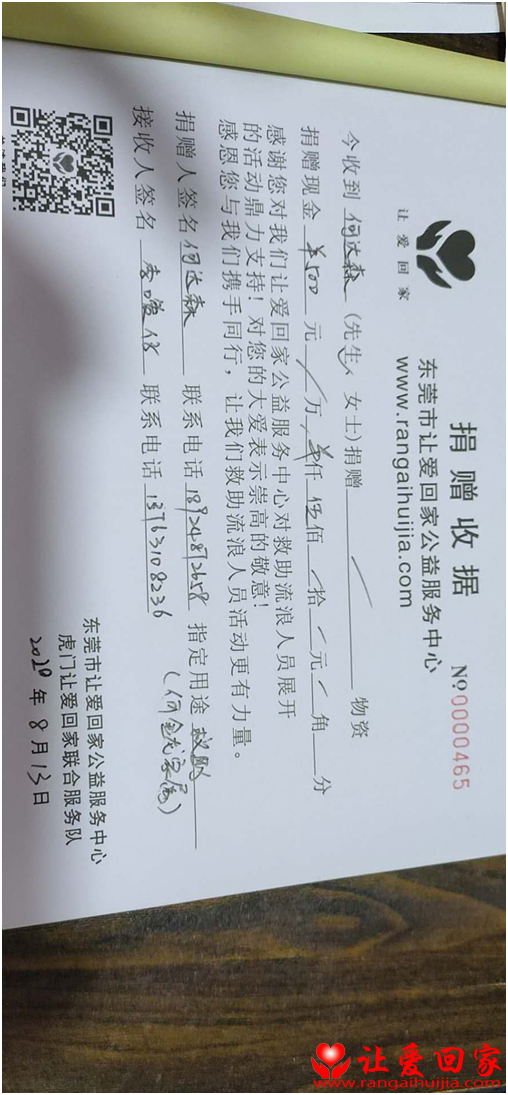 让爱回家
捐赠收据
东莞市让爱回家公益服务中心
www.rangaihuijia.com
Nº0000465
今收到 何达森 (先生、女士)捐赠 物资
捐赠现金 ¥500 元 万 仟 伍佰 拾 元 角 分
感谢您对我们让爱回家公益服务中心对救助流浪人员展开
的活动鼎力支持！对您的大爱表示崇高的敬意！
感恩您与我们携手同行，让我们救助流浪人员活动更有力量。
捐赠人签名 何达森 联系电话 指定用途
接收人签名 联系电话 13763108236
东莞市让爱回家公益服务中心
虎门让爱回家联合服务队
2020年8月13日
让爱回家
www.rangaihuijia.com